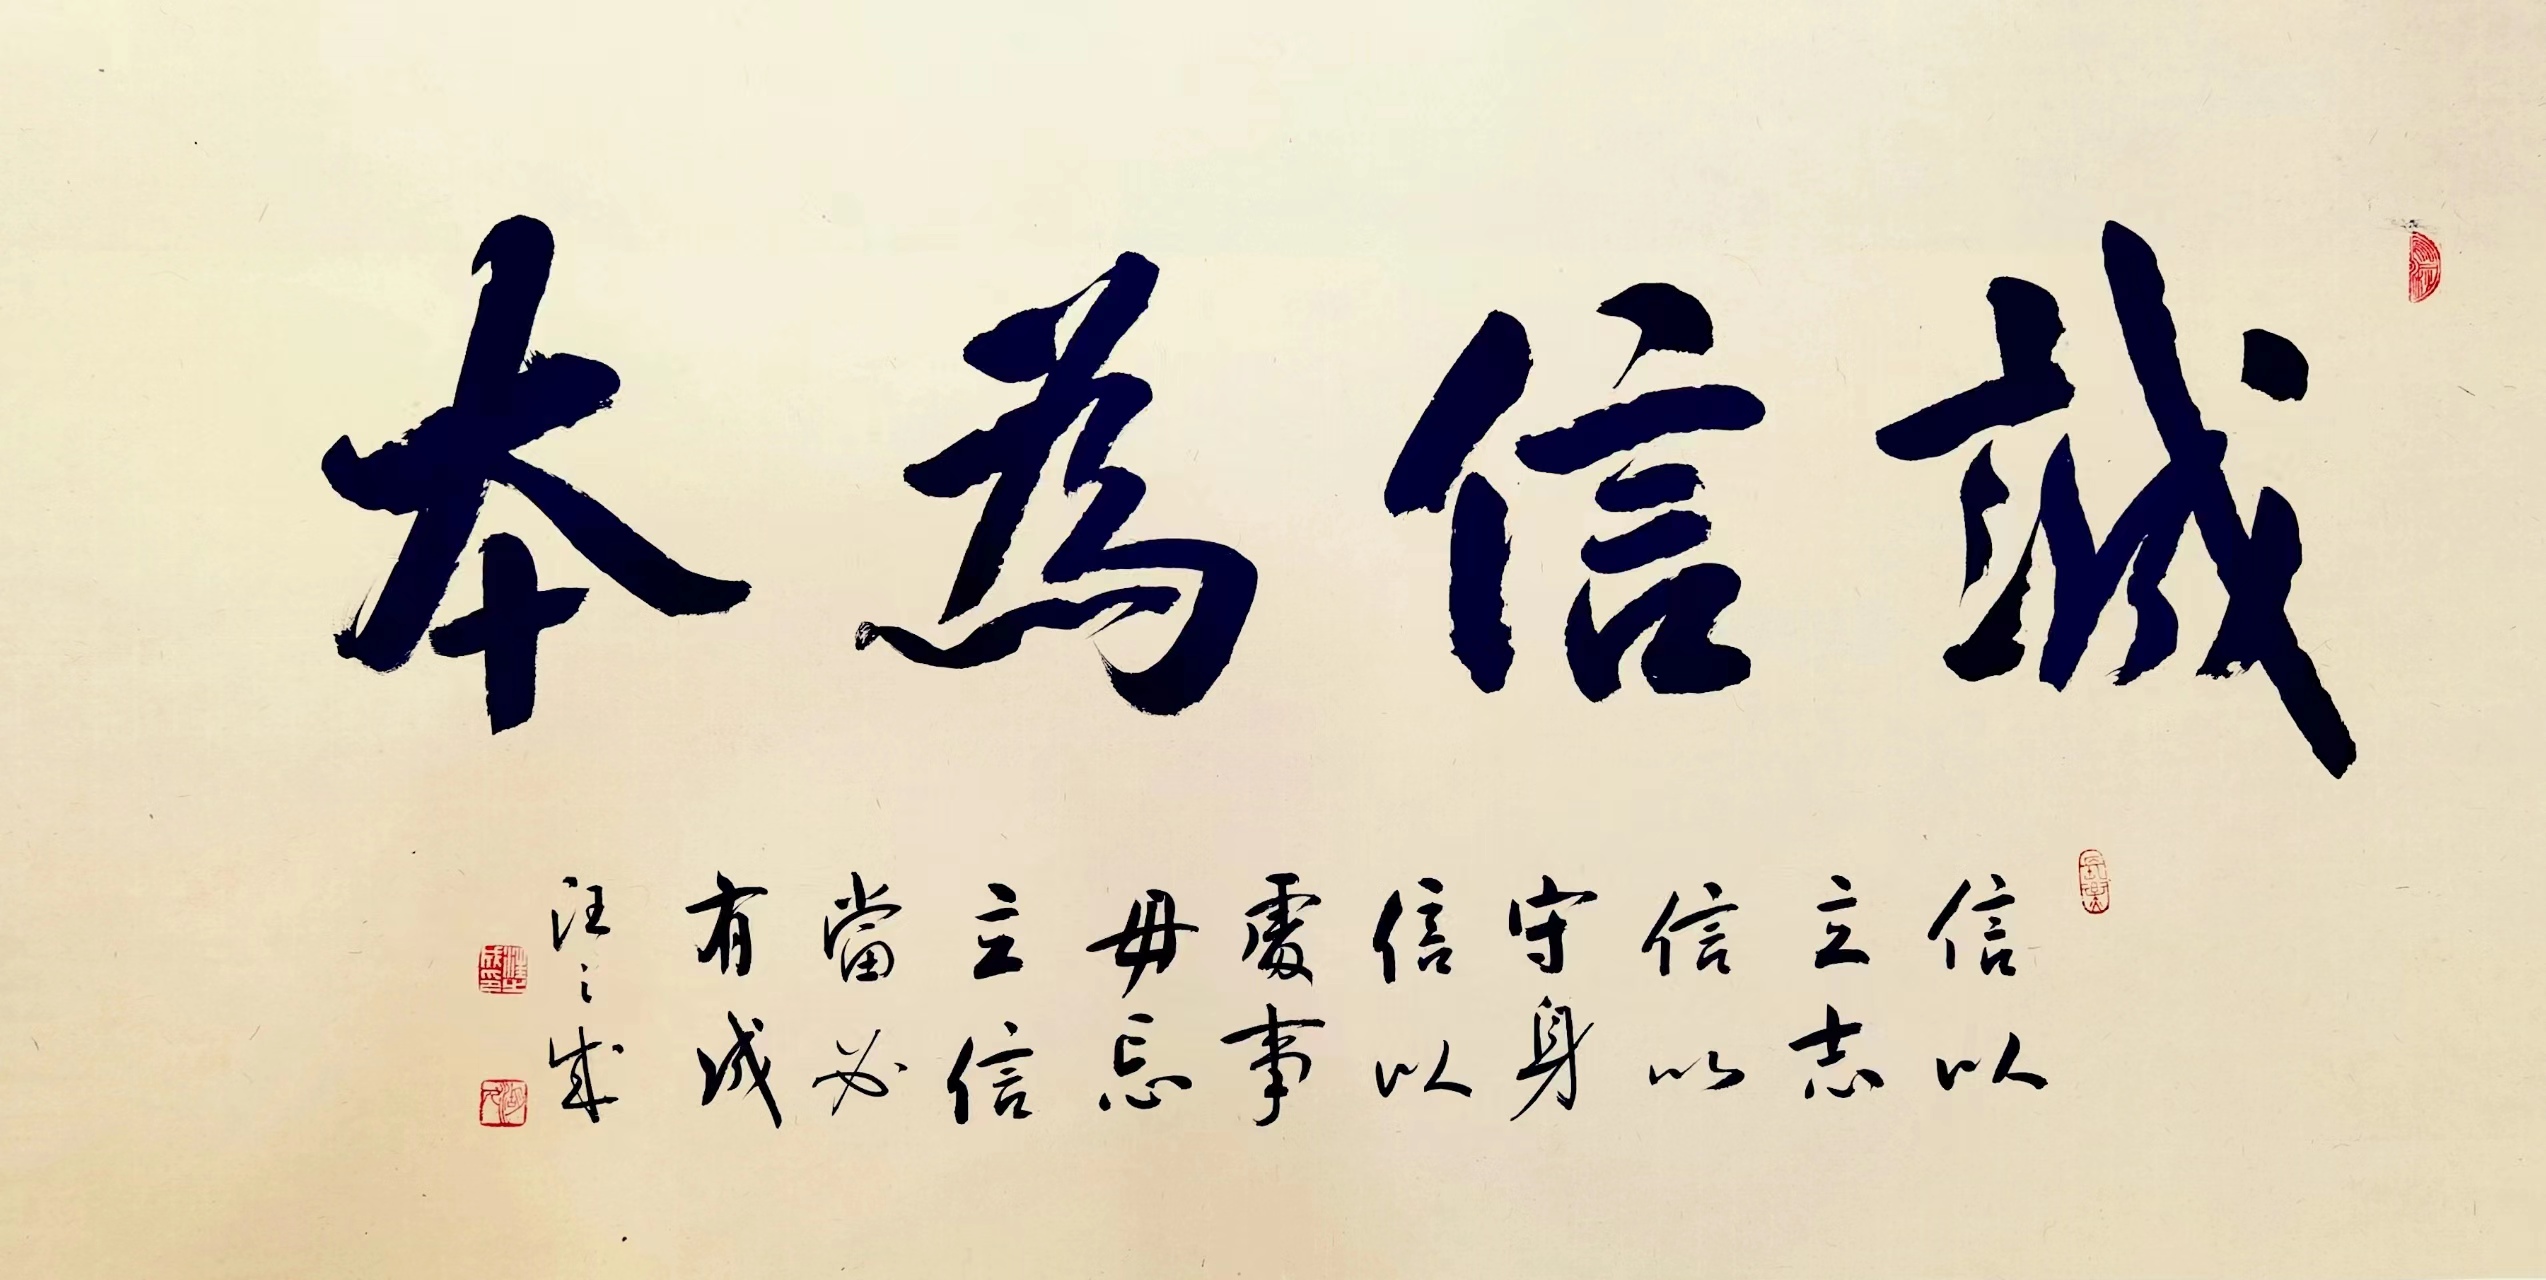 誠信為本
信以
立志
信以
守身
信以
處事
毋忘
立信
當必
有成
汪之成